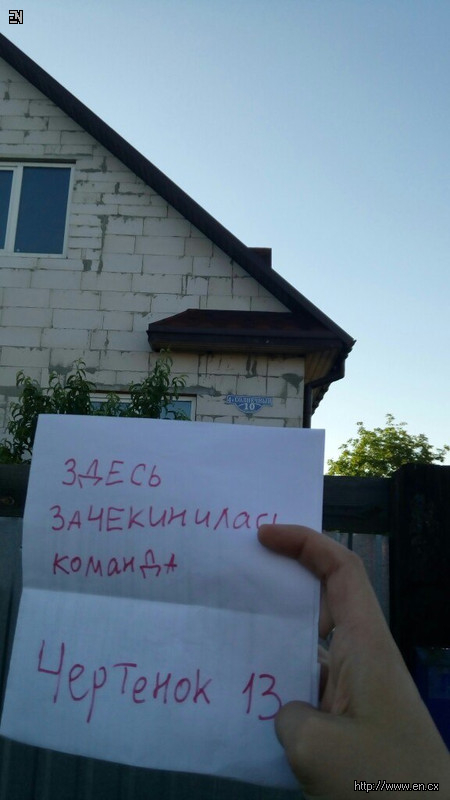 EN
10
ЗДЕСЬ
ЗАЧЕКИНИЛАСЬ
КОМАНДА
ЧЕРТЕНОК 13
http://www.en.cx